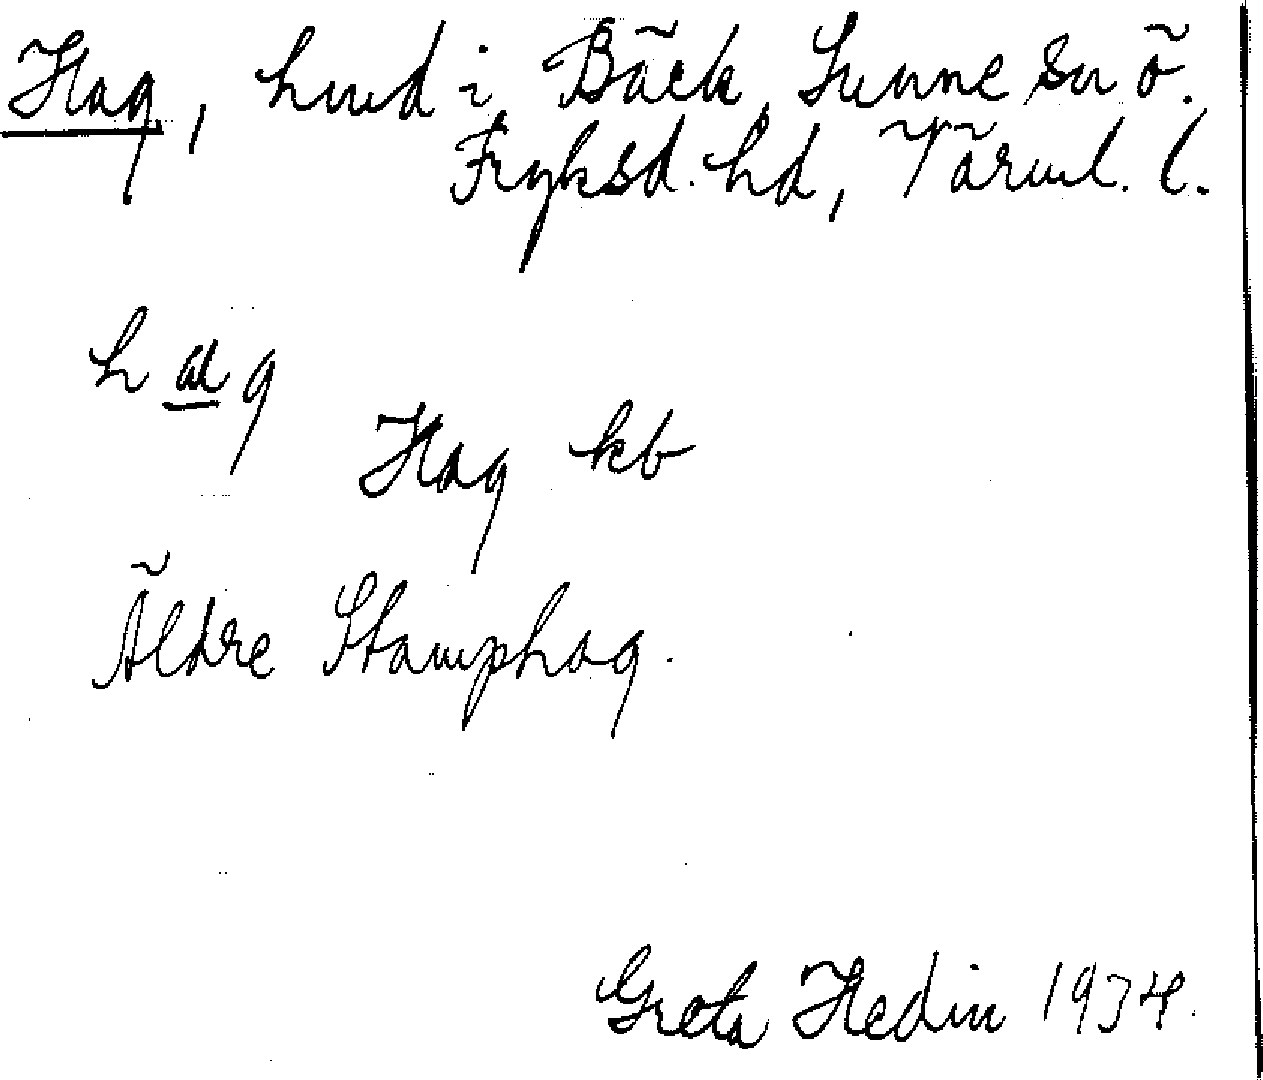 Hag, hmd i Bäck, Sunne sn ö.
Fryksd. hd, Värml. l.
h a g
Hag kb
Äldre Stamphag.
Greta Hedin 1934.